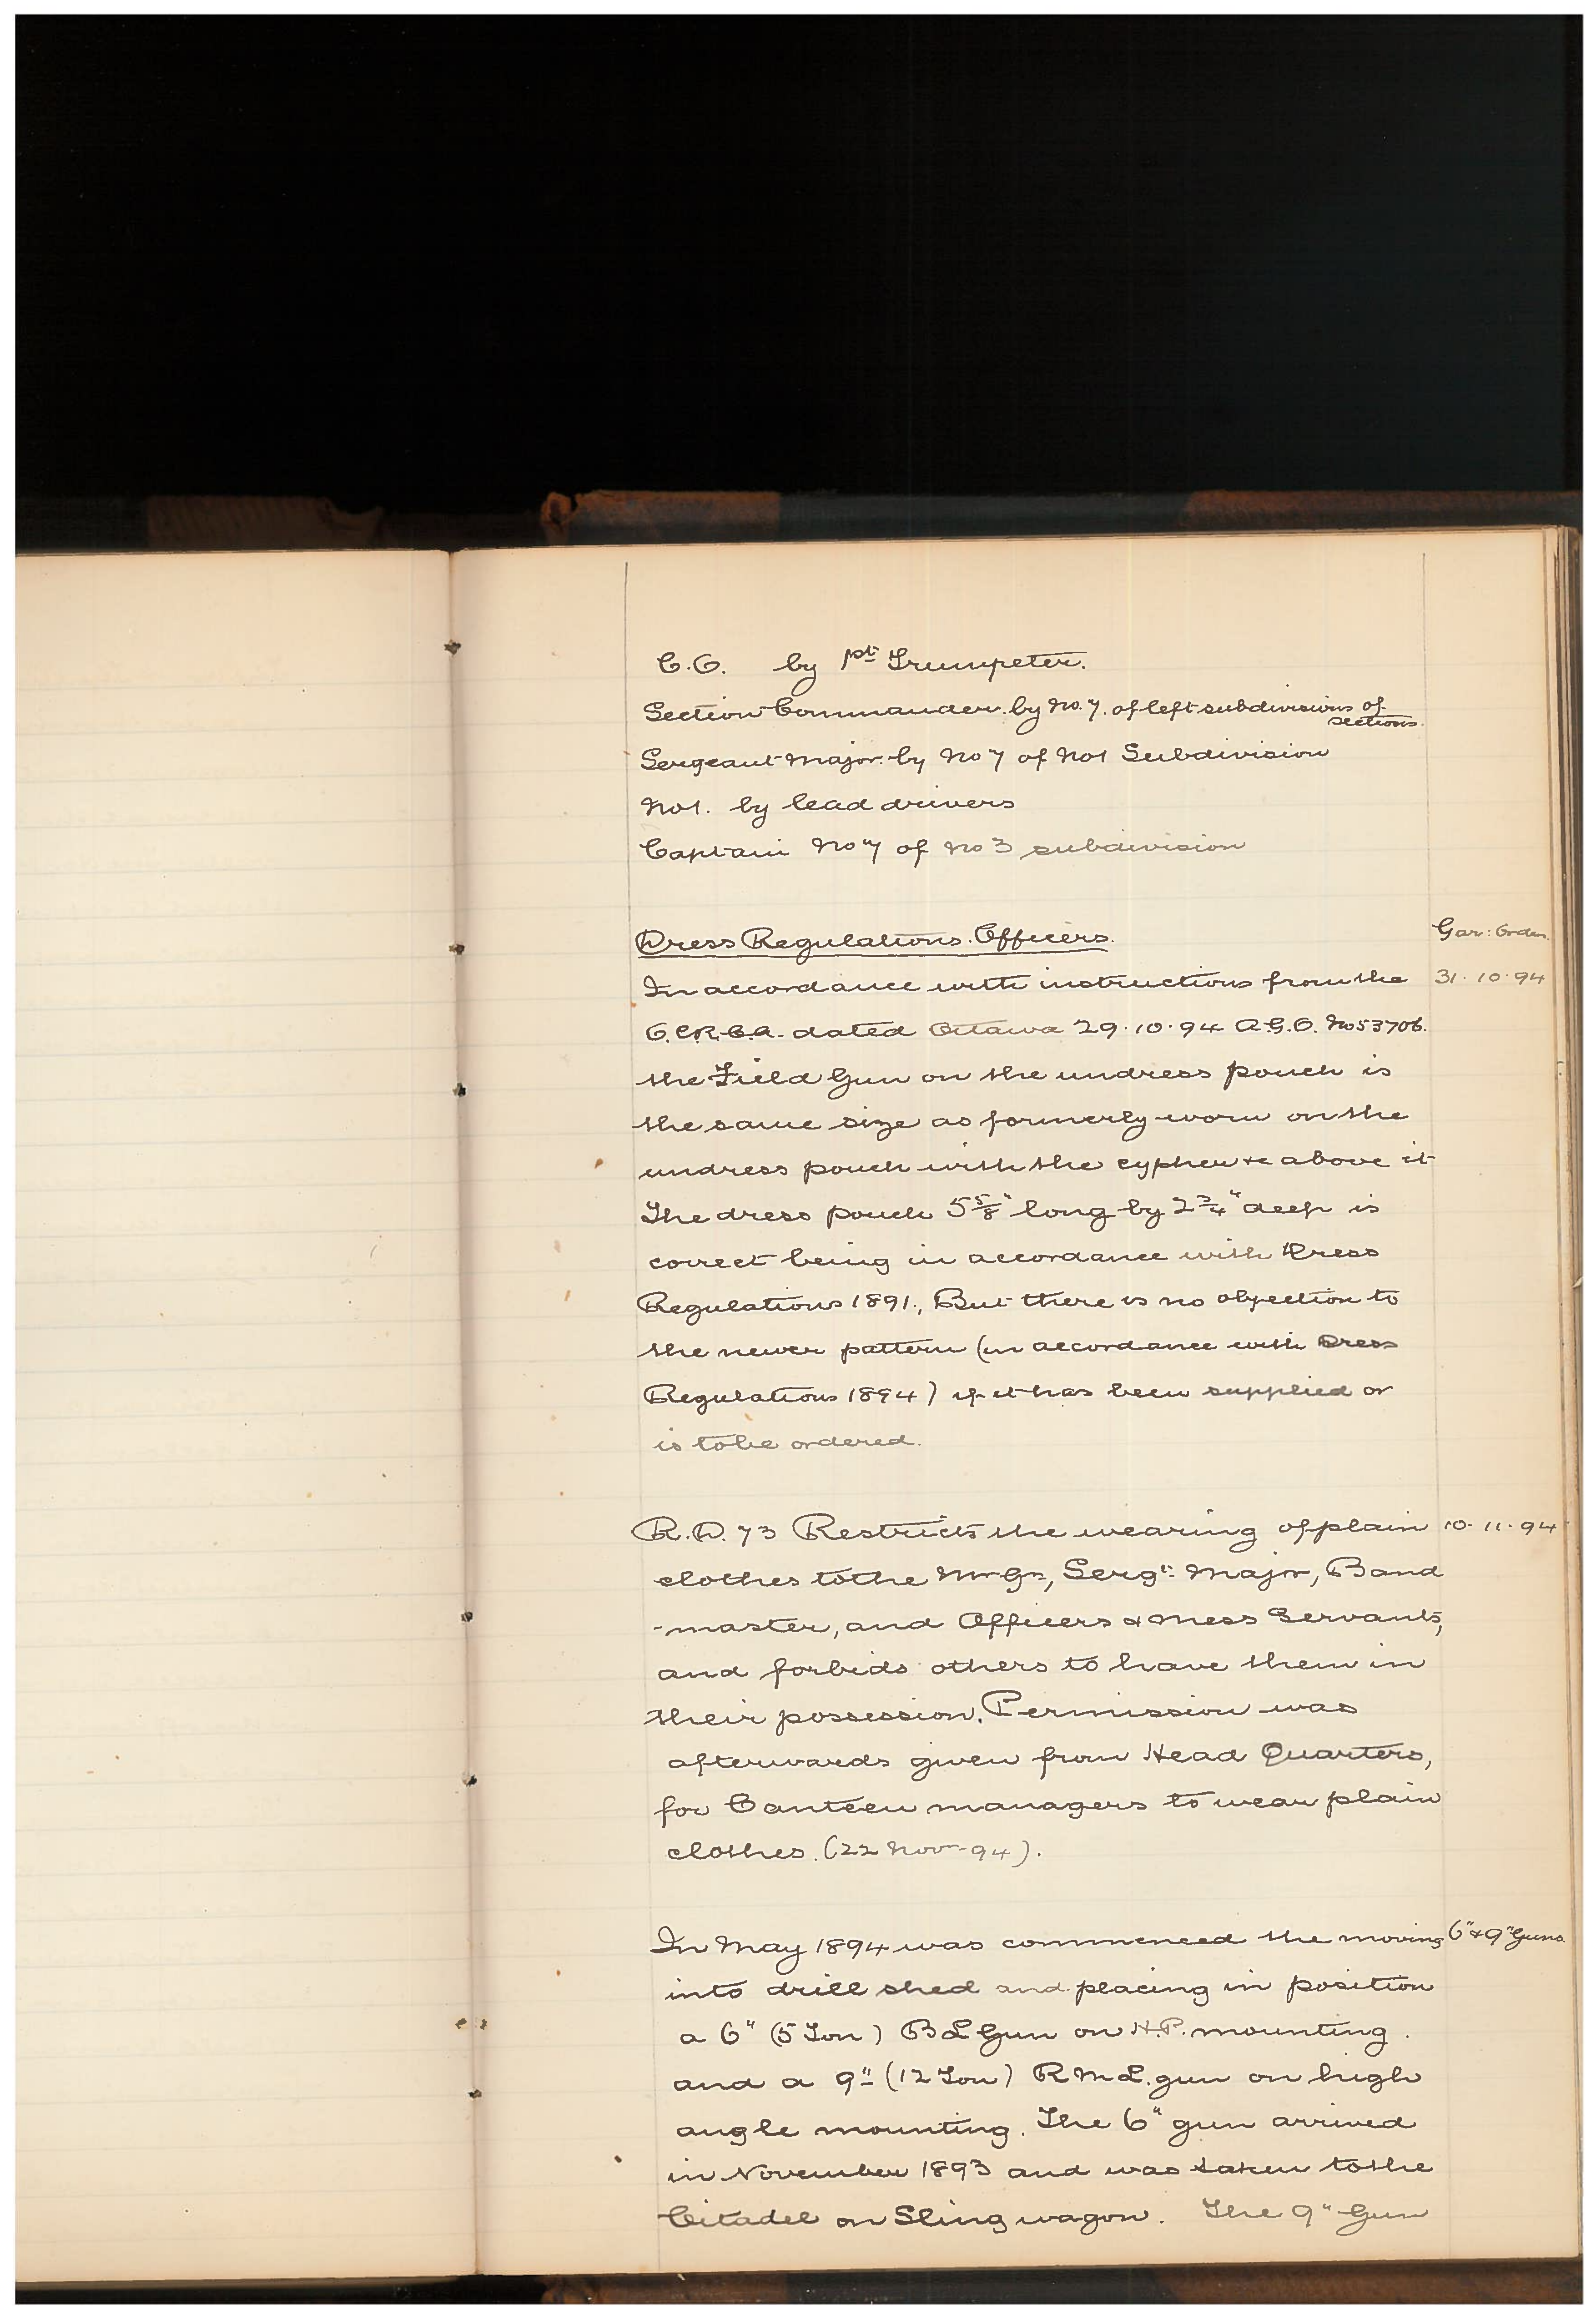 C.O. by 1st Trumpeter.
Section Commander. by No. 7. of left subdivisions of
sections.
Sergeant-Major. by No 7 of No 1 Subdivision
No 1. by lead drivers
Captain No 7 of No 3 subdivision
Dress Regulations. Officers. Gar: Orders.
In accordance with instructions from the 31.10.94
O.C.R.C.A. dated Ottawa 29.10.94 A.G.O. No 53706.
the Field Gun on the undress pouch is
the same size as formerly worn on the
undress pouch with the cypher &c above it
The dress pouch 5 5/8" long by 2 3/4" deep is
correct being in accordance with Dress
Regulations 1891., But there is no objection to
the newer pattern (in accordance with Dress
Regulations 1894) if it has been supplied or
is to be ordered.
R.D. 73 Restricts the wearing of plain 10.11.94
clothes to the Mr Gr, Sergt: Major, Band
-master, and Officers & Mess Servants,
and forbids others to have them in
their possession. Permission was
afterwards given from Head Quarters,
for Canteen managers to wear plain
clothes. (22 Novr-94).
In May 1894 was commenced the moving 6" & 9" Guns.
into drill shed and placing in position
a 6" (5 Ton) B L Gun on H.P. mounting.
and a 9" (12 Ton) R M L. gun on high
angle mounting. The 6" gun arrived
in November 1893 and was taken to the
Citadel on Sling wagon. The 9" Gun